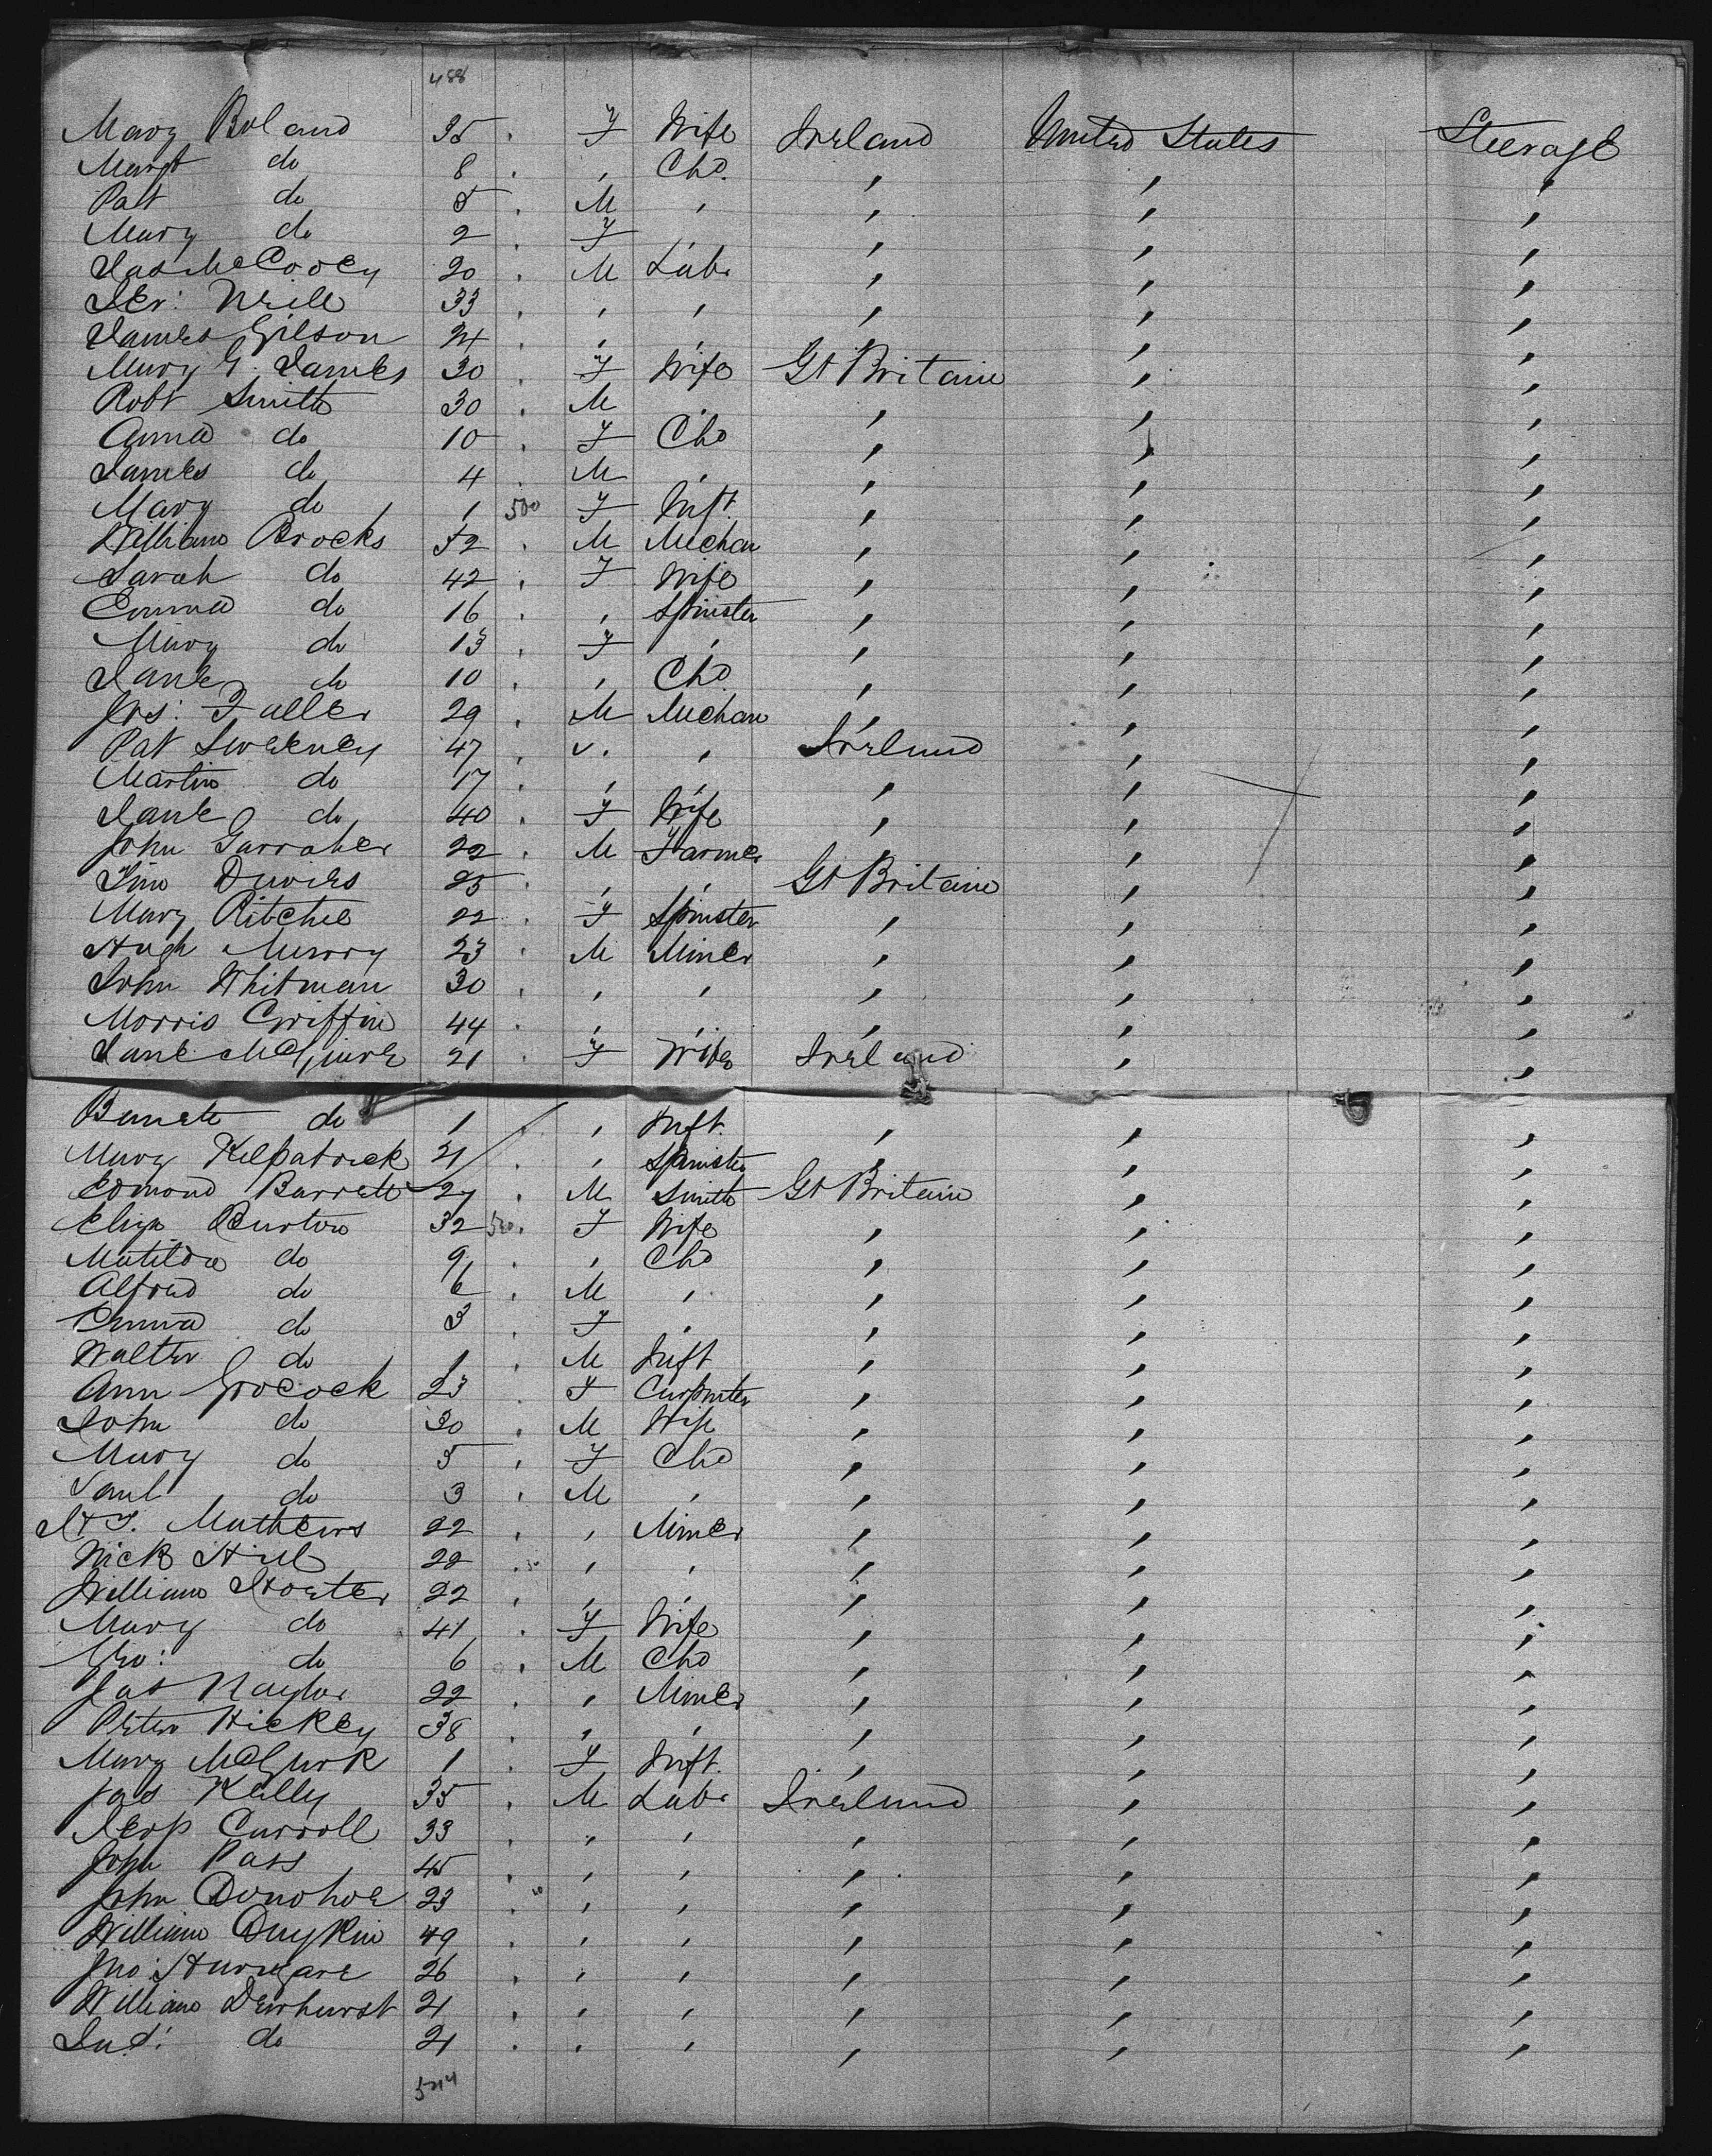 488
Mary Boland 35 . F Wife Ireland United States Steerage
Margt do 8 . , Chd. , , ,
Pat do 5 . M , , , ,
Mary do 2 . F , , , ,
Jas McCooey 20 . M Labr , , ,
Jer: Neill 33 . , , , , ,
James Gilson 24 . , , , , ,
Mary G. James 30 . F Wife Gt Britain , ,
Robt Smith 30 . M , , , ,
Anna do 10 . F Chd , , ,
James do 4 . M , , , ,
Mary do 1 500 F Inft. , , ,
William Brocks 52 . M Mechan , , ,
Sarah do 42 . F Wife , , ,
Emma do 16 . , Spinster , , ,
Mary do 13 . F , , , ,
Jane do 10 . , Chd , , ,
Jos: Fuller 29 . M Mechan , , ,
Pat Sweeney 47 . , , Ireland , ,
Martin do 17 . , , , , ,
Jane do 40 . F Wife , , ,
John Garraher 22 . M Farmer , , ,
Davies 25 . , , Gt Britain , ,
Mary Ritchie 22 . F Spinster , , ,
Hugh Murry 23 . M Miner , , ,
John Whitman 30 . , , , , ,
Morris Griffin 44 . , , , , ,
Jane McGuire 21 . F Wife Ireland , ,
do 1 . , Inft. , , ,
Mary Kilpatrick 21 . , Spinster , , ,
Edmond Barrett 27 . M Smith Gt Britain , ,
Eliza Burton 32 . F Wife , , ,
Matilda do 9 . , Chd , , ,
Alfred do 6 . M , , , ,
Emma do 3 . F , , , ,
Walter do 1 . M Inft , , ,
Ann Grocock 23 . F Carpenter , , ,
John do 30 . M Wife , , ,
Mary do 5 . F Chd , , ,
do 3 . M , , , ,
Mathews 22 . , Miner , , ,
Nick Hill 22 . , , , , ,
William 22 . , , , , ,
Mary do 41 . F Wife , , ,
Geo: do 6 . M Chd , , ,
Jas Naylor 22 . , Miner , , ,
Peter Hickey 38 . , , , , ,
Mary McGurk 1 . F Inft. , , ,
Jas Kelly 35 . M Labr Ireland , ,
Carroll 33 . , , , , ,
John Pass 45 . , , , , ,
John Donohoe 23 . , , , , ,
William 49 . , , , , ,
Jno: 26 . , , , , ,
William Dewhurst 21 . , , , , ,
do 21 . , , , , ,